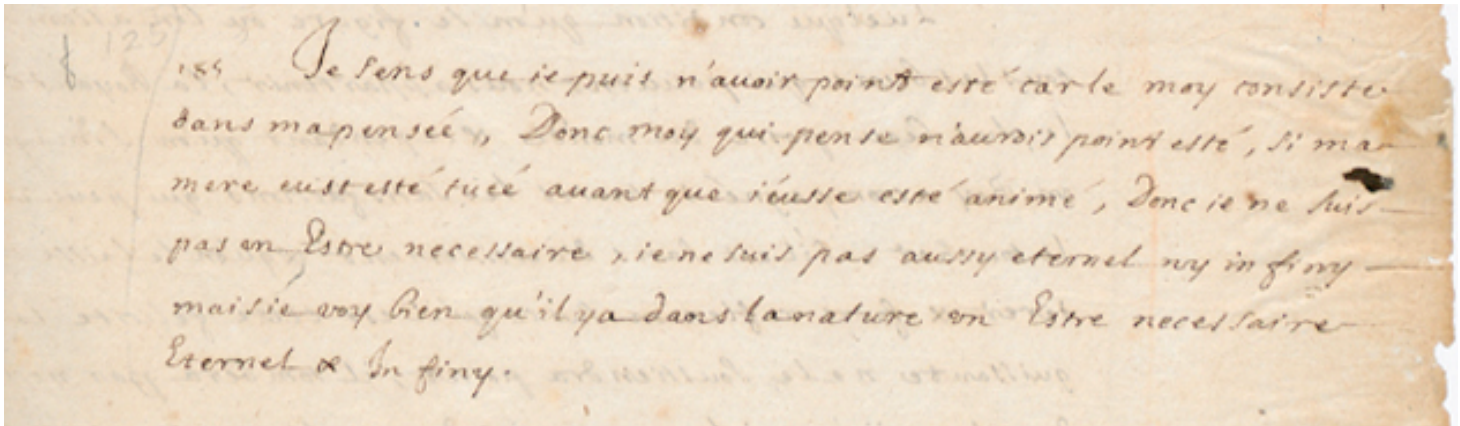 Je sens que ie puis n'auoir point esté car le moy consiste
dans ma pensée, Donc moy qui pense n'aurois point esté, si ma
mere eust esté tuée auant que i'éusse esté animé, Donc ie ne suis
pas un Estre necessaire, ie ne suis pas aussy eternel ny infiny
mais ié voy bien qu'il y a dans la nature un Estre necessaire
Eternel & Infiny.